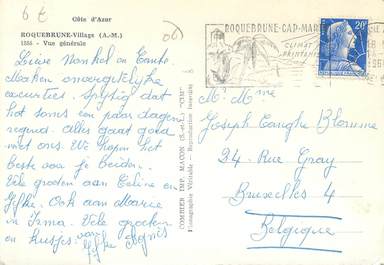 6 €
Côte d'Azur
ROQUEBRUNE-Village (A.-M.)
1255 - Vue générale
Lieve Nonkel en Tante
Maken onvergetelijke
excursties. Spijtig dat
het soms een paar dagen
regend. Alles gaat goed
met ons. We hopen het
beste voor je beiden.
Vele groeten aan Celine en
Jefke. Ook aan Marie
en Irma. Vele groeten
en kusjes van Agnès
Jefke
COMBIER IMP. MACON (S.-et-L.) "CIM"
Photographie Véritable - Reproduction Interdite
ROQUEBRUNE-CAP-MAR
CLIMAT
PRINTANIE
20F
Mr. Mme
Joseph Langhe Blomme
24 - Rue Gray
Bruxelles 4
Belgique